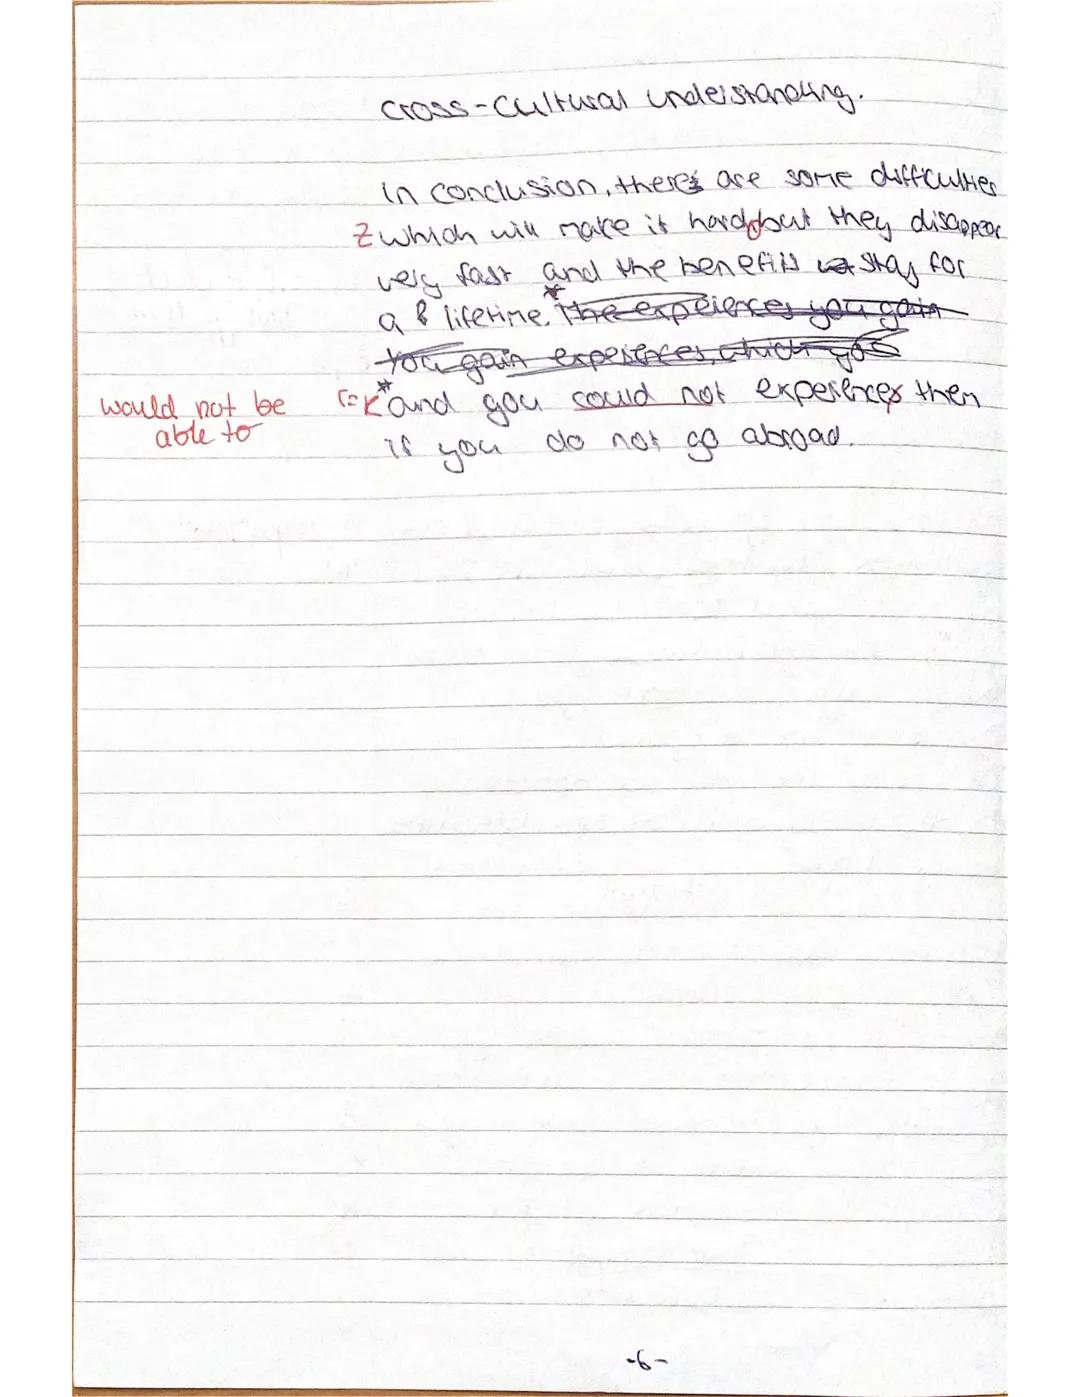 cross-cultural understanding.
In conclusion, there are some difficulties
Z which will make it hard, but they disappear
very fast and the benefits stay for
a lifetime. * The expeiences you gain
You gain experiences, which you
would not be (=) * and you could not experiences then
able to if you do not go abroad.
-6-